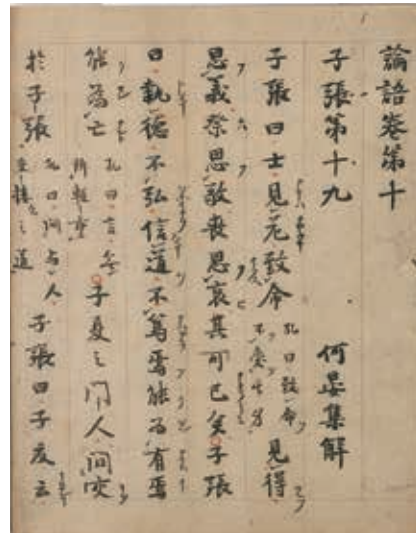 論語卷第十
子張第十九 何晏集解
子張曰士見危致命 孔曰致命不愛其身 見得
思義祭思敬喪思哀其可已矣子張
曰執德不弘信道不篤焉能為有焉
能為亡 孔曰言無所輕重 子夏之門人問交
於子張 孔曰問与人交接之道 子張曰子夏云